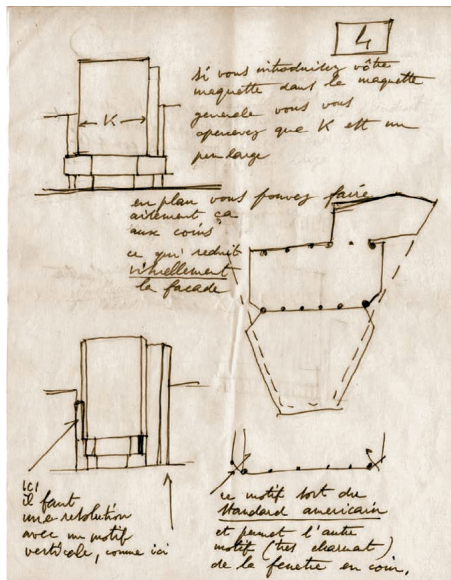 4
si vous introduitez vôtre
maquette dans la maquette
generale vous vous
apercevez que K est un
peu large
K
en plan vous pouvez faire
aisement ça
aux coins
ce qui reduit
visuellement
la facade
ici
il faut
une resolution
avec un motif
verticale, comme ici
ce motif sort du
standard americain
et permet l'autre
motif (tres charmat)
de la fenetre en coin.